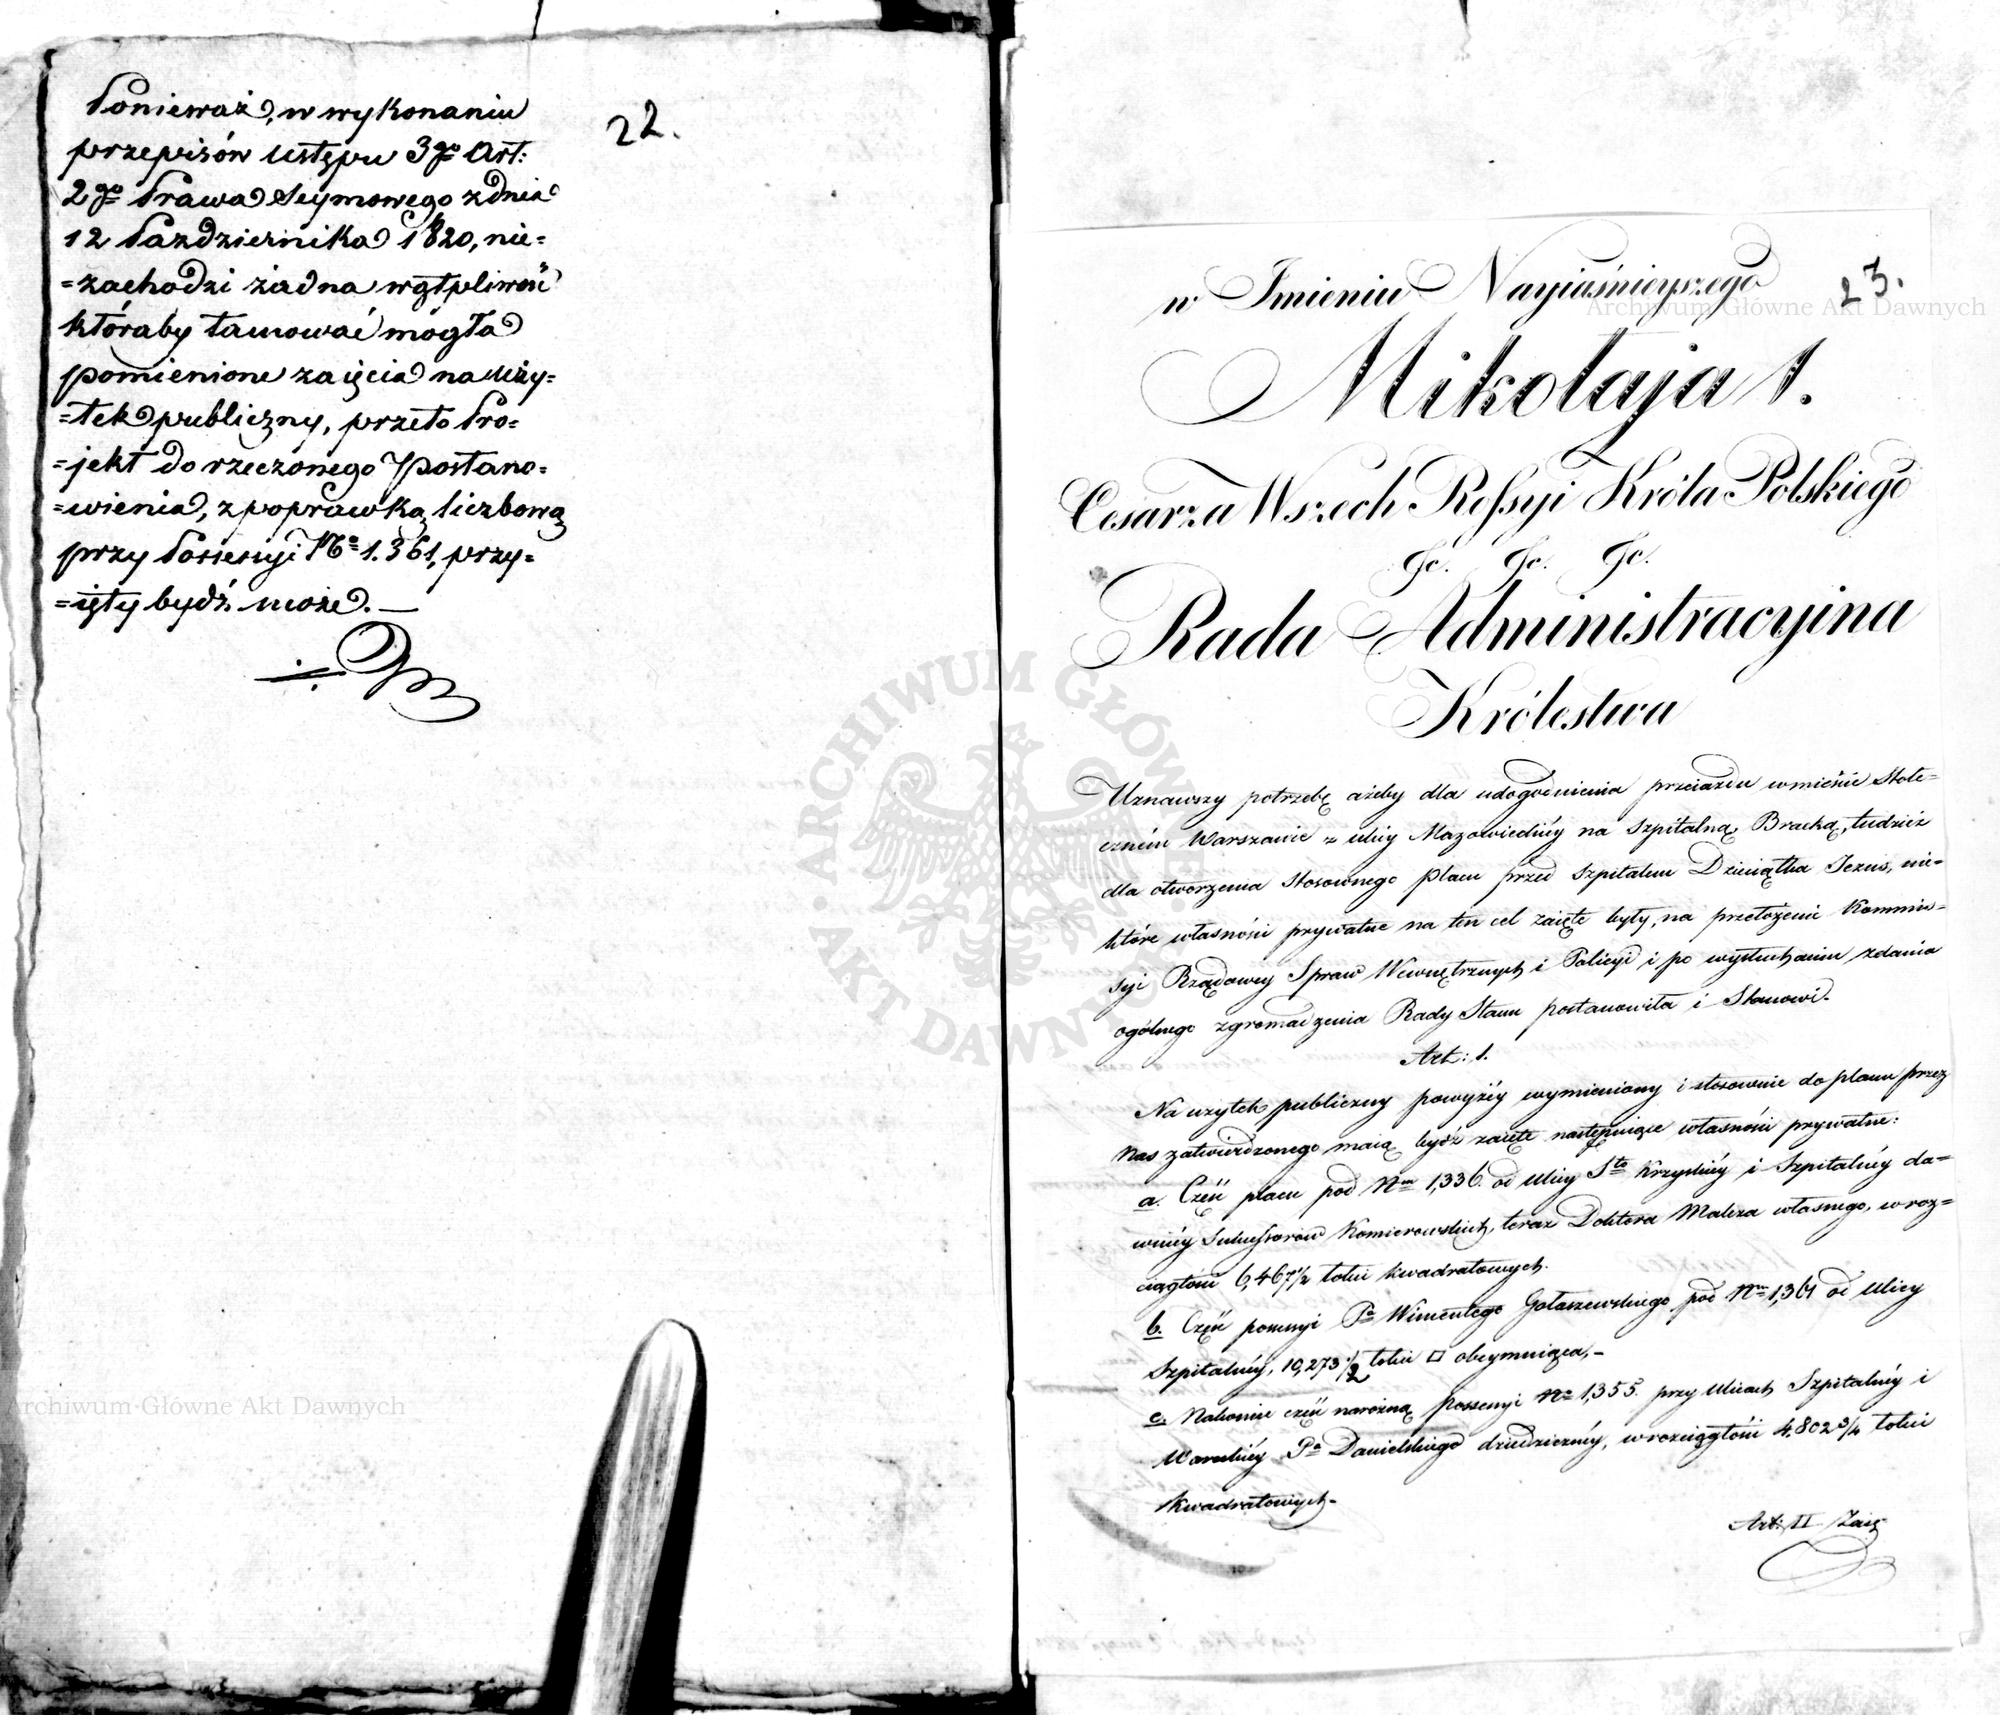 Ponieważ, w wykonaniu
przepisów ustępu 3go Art:
2go Prawa Seymowego z dnia
12 Października 1820, nie=
=zachodzi żadna wątpliwość
któraby tamować mogła
pomienione zaięcia na uży=
=tek publiczny, przeto Pro=
=jekt do rzeczonego Postano=
=wienia, z poprawką liczbową
przy Possesyi No 1.361, przy=
=ięty bydź może. —
22.
23.
w Imieniu Nayiaśnieyszego
Mikołaja 1.
Cesarza Wszech Rossyi Króla Polskiego
&c. &c. &c.
Rada Administracyina
Królestwa
Uznawszy potrzebę ażeby dla udogodnienia przeiazdu w mieście Stołe=
czném Warszawie z ulicy Mazowieckiéy na Szpitalną, Bracką, tudzież
dla otworzenia stosownego placu przed Szpitalem Dzieciątka Jezus, nie=
które własności prywatne na ten cel zaięte były, na przełożenie Kommis=
syi Rządowey Spraw Wewnętrznych i Policyi i po wysłuchaniu zdania
ogólnego zgromadzenia Rady Stanu postanowiła i Stanowi.
Art: 1.
Na użytek publiczny powyżéy wymieniony i stosownie do planu przez
Nas zatwierdzonego maią bydź zaięte następuiące własności prywatne:
a. Część placu pod Nm 1,336. od ulicy Sto Krzyskiéy i Szpitalnéy da=
wniéy Sukcessorów Komierowskich, teraz Doktora Malcza własnego, w roz=
ciągłości 6,467 1/2 łokci kwadratowych.
b. Część possesyi Pa Wincentego Gołaszewskiego pod Nm 1,361 od ulicy
Szpitalnéy, 10,273 1/2 łokci □ obeymuiąca,–
c. Nakoniec część narożną possesyi No 1,355. przy ulicach Szpitalnéy i
Wareckiéy Pa Danielskiego dziedzicznéy, w rozciągłości 4,802 3/4 łokci
kwadratowych–
Art: II Zaię
Archiwum Główne Akt Dawnych
Archiwum Główne Akt Dawnych
ARCHIWUM GŁÓWNE · AKT DAWNYCH ·